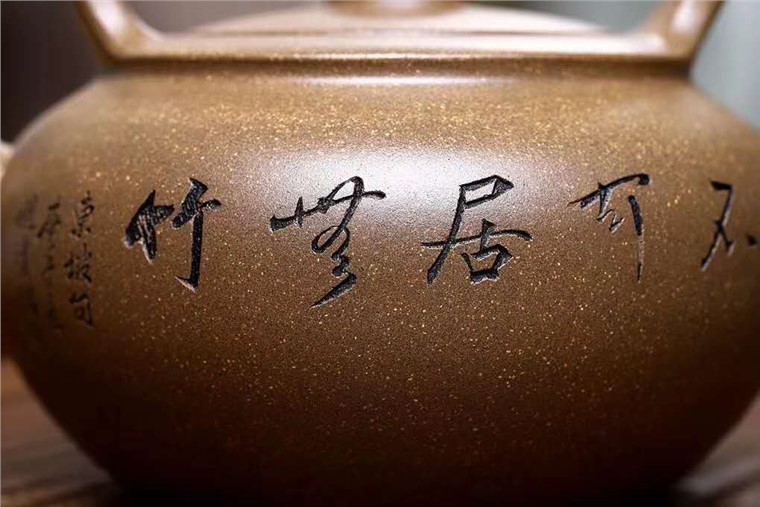 不可居無竹
東坡句